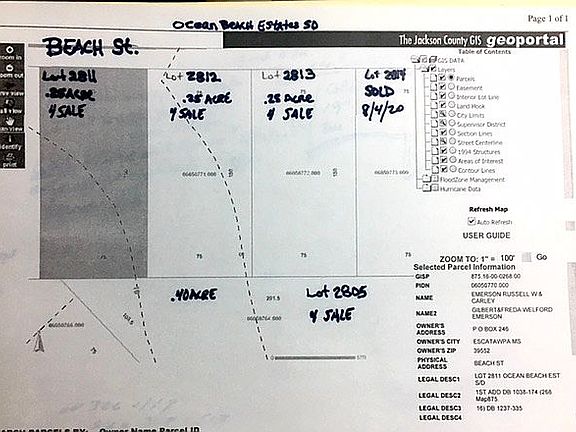 Ocean Beach Estates SD
Page 1 of 1
BEACH St.
The Jackson County GIS geoportal
Table of Contents
GIS DATA
Layers
Parcels
Easement
Interior Lot Line
Land Hook
City Limits
Supervisor District
Section Lines
Street Centerline
1994 Structures
Areas of Interest
Contour Lines
FloodZone Management
Hurricane Data
Refresh Map
Auto Refresh
USER GUIDE
ZOOM TO: 1" = 100' Go
Lot 2811
.25 Acre
4 SALE
Lot 2812
.25 ACRE
4 SALE
Lot 2813
.25 Acre
4 SALE
Lot 2814
SOLD
8/4/20
identify
print
66050771.000
66050772.000
66050773.000
75
75
75
75
.40 ACRE
201.5
Lot 2805
4 SALE
Selected Parcel Information
GISP 875.16-00-0268.00
PIDN 06050770.000
NAME EMERSON RUSSELL W & CARLEY
NAME2 GILBERT&FREDA WELFORD EMERSON
OWNER'S ADDRESS P O BOX 246
OWNER'S CITY ESCATAWPA MS
OWNER'S ZIP 39552
PHYSICAL ADDRESS BEACH ST
LEGAL DESC1 LOT 2811 OCEAN BEACH EST S/D
LEGAL DESC2 1ST ADD DB 1038-174 (268 Map875
LEGAL DESC3 16) DB 1237-335
LEGAL DESC4
ARCH PARCELS BY: Owner Name Parcel ID